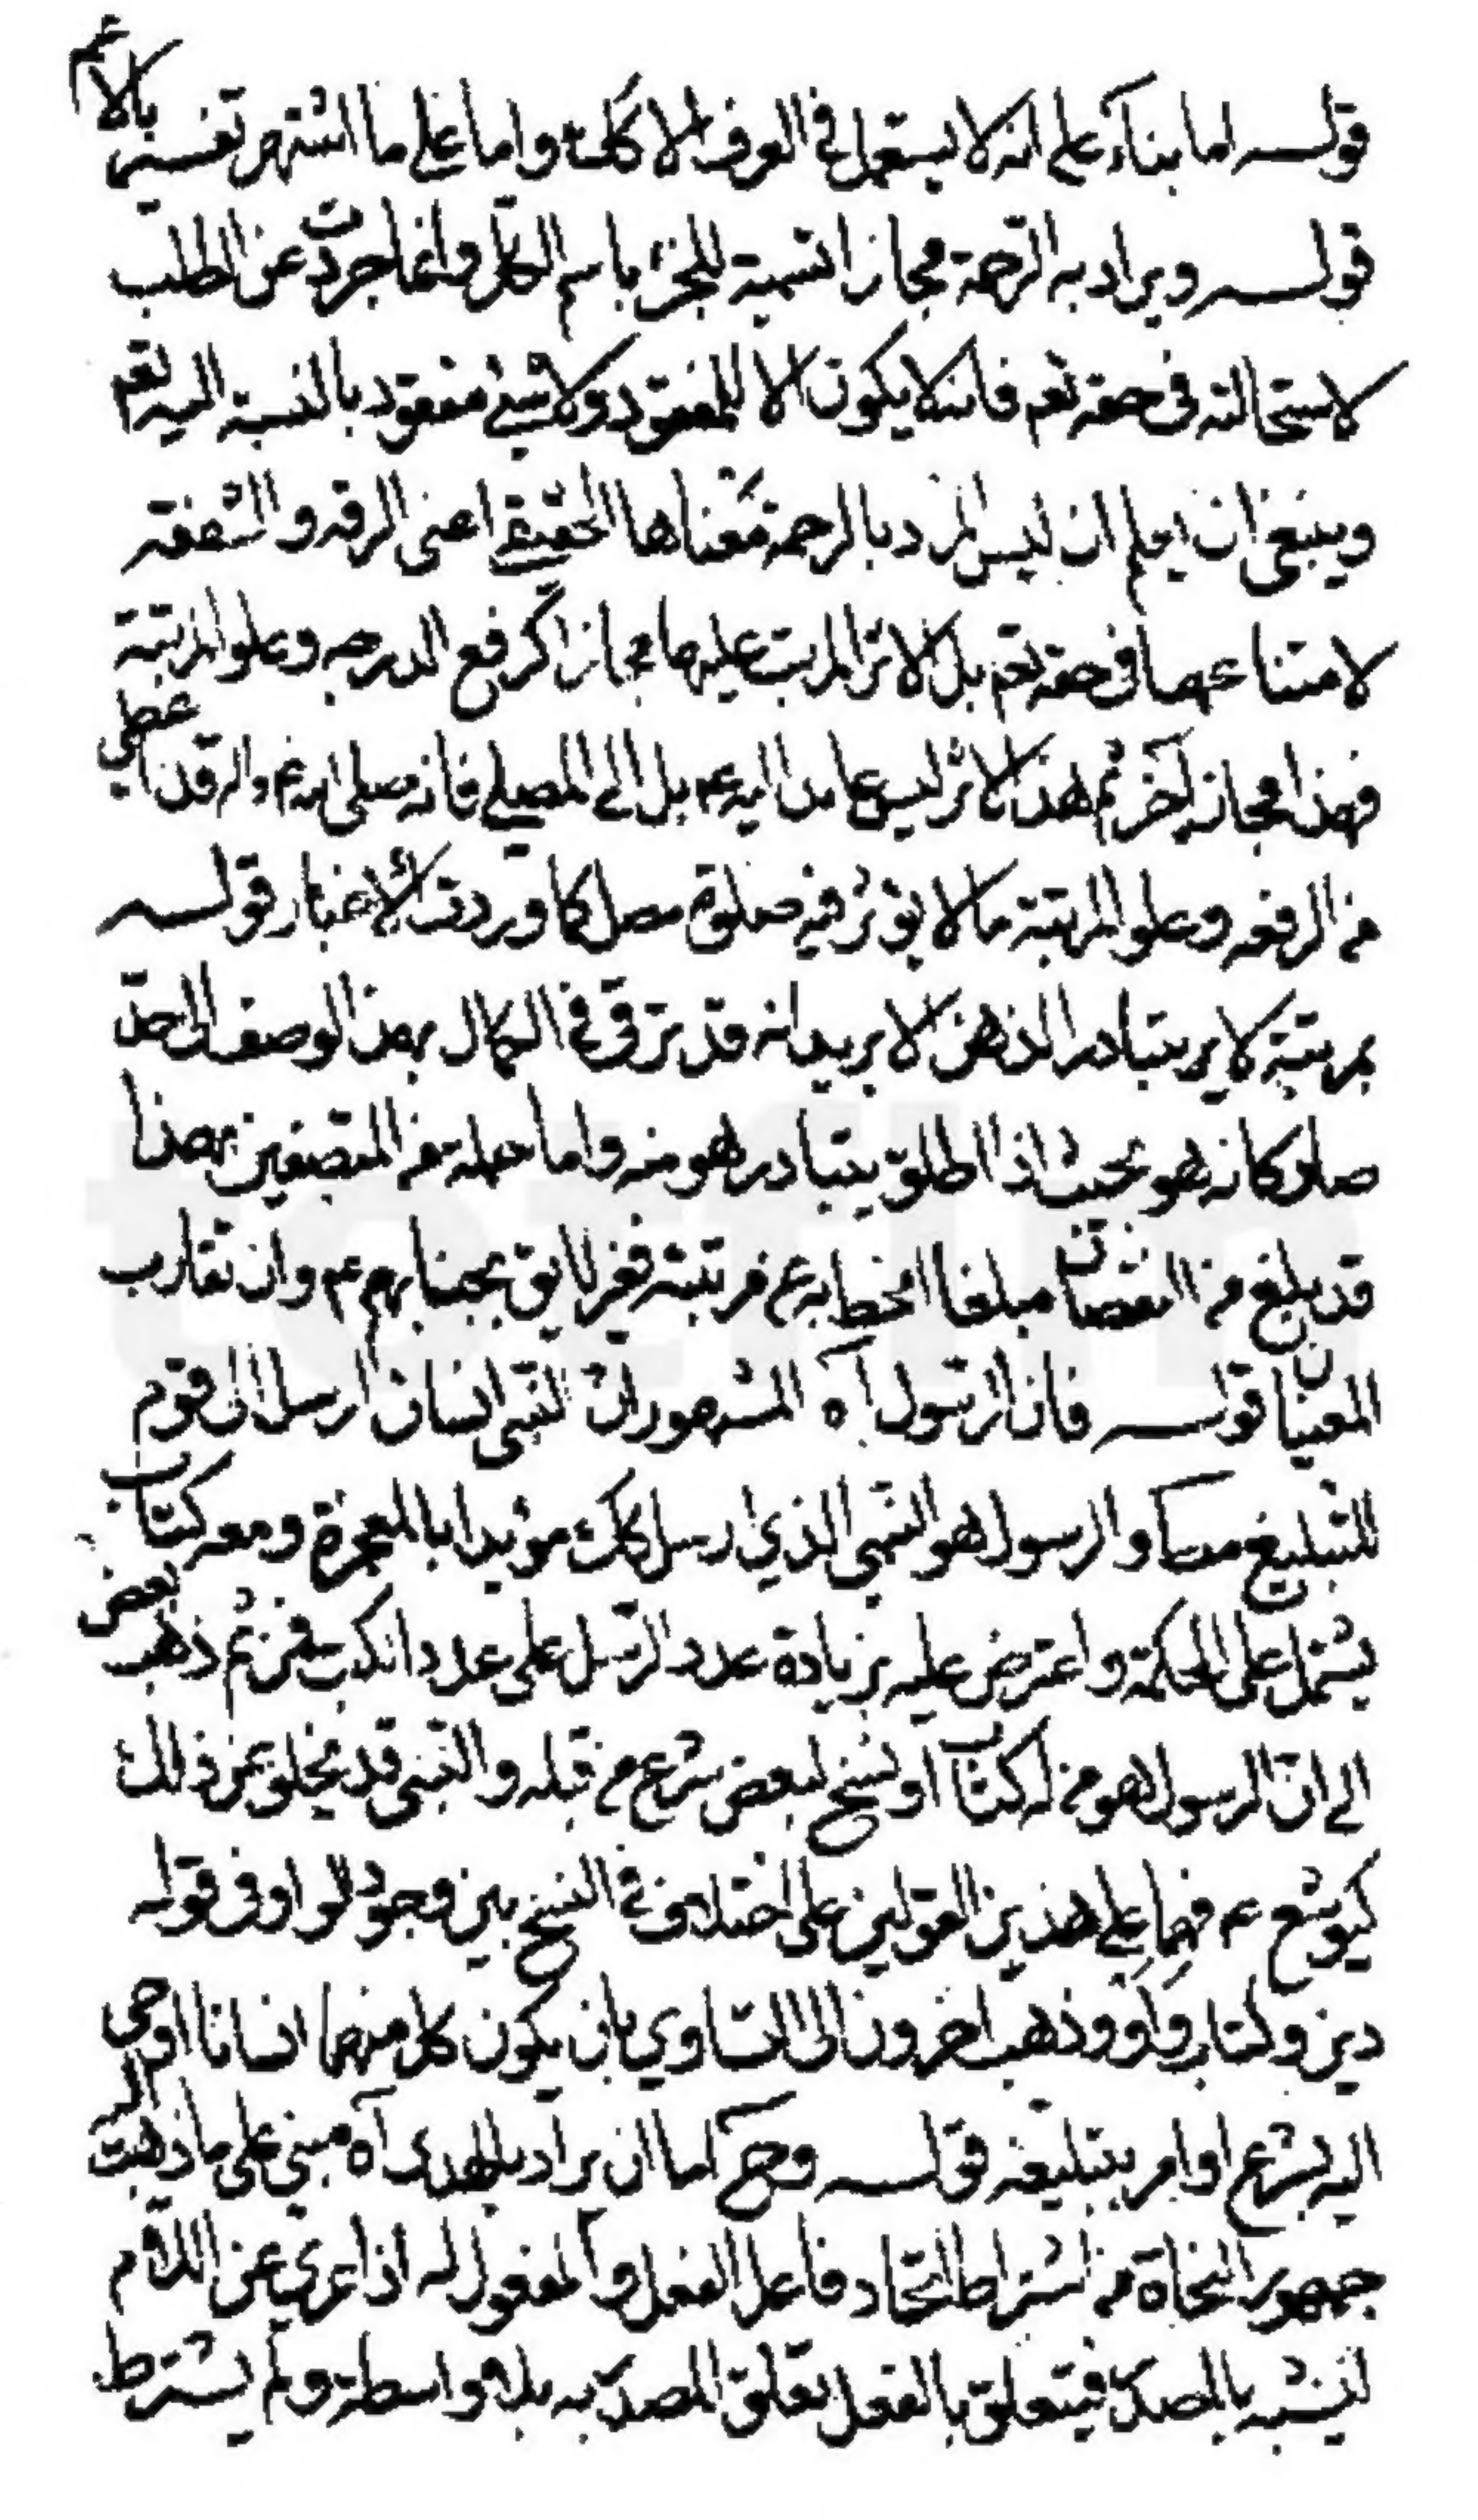 قولـه اما بناء على انه لا يستعمل في العرف الا كك واما على ما اشتهر تفسيره بالأعم
قولـه ويراد به الرحمة مجازا تسمية للجزء باسم الكل وانما جردت عن الطلب
لاستحالته فى حقه تعم فانه لا يكون الا للمفقود ولا شيئ مفقود بالنسبة اليه تعم
وينبغى ان يعلم ان ليس المرد بالرحمة معناها الحقيقى اعنى الرقه والشفقه
لامتناعهما فى حقه تعم بل الاثر المرتب عليها مجازا كرفع الدرجه وعلو المرتبة
فهذا مجاز آخر ثم هذ الاثر ليس عايدا اليه عم بل الى المصلى فانه صلى الله عم واله قد اعطى
من الرفعه وعلو المرتبة ما لا يؤثر فيه صلوة مصل كما وردت الأخبار قولـه
بمرتبة لا يتبادر الذهن لا يريد انه قد ترقى فى الكمال بهذ الوصف الى حد
صار كانه هو بحيث اذا اطلق يتبادر هو منه واما حمله من المتصفين بهذا
قد بلغ من النقصان مبلغا انحط به عن مرتبته فغير لايق بجنابهم عم وان تقارب
المعنيان قولـه فان الرسول آه المشهور ان النبى انسان ارسل الى قوم
للتبليغ والرسول هو النبى الذي ارسل كك مؤيدا بالمعجزة ومعه كتاب
يشتمل على الحكمة واعترض عليه بزيادة عدد الرسل على عدد الكتب فمن ثم ذهب بعض
الى ان الرسول هو من له كتاب او نسخ لبعض شرع من قبله والنبى قد يخلو عن ذلك
كيوشع عم فهما على هذين القولين على اختلاف فى النسخ بين وجود الواو فى قوله
دين وكتاب واو وذهب اخرون الى التساوي بان يكون كل منهما انسانا اوحى
اليه بشرع او امر بتبليغه قولـه وح اما ان يراد بالهدى آه مبنى على ما ذهبت اليه
جمهور النحاة من اشتراط اتحاد فاعل الفعل والمفعول له اذا عرى عن اللام
ليشبه بالمصدر فيتعلق بالفعل تعلق المصدر به بلا واسطة ولم يشترط